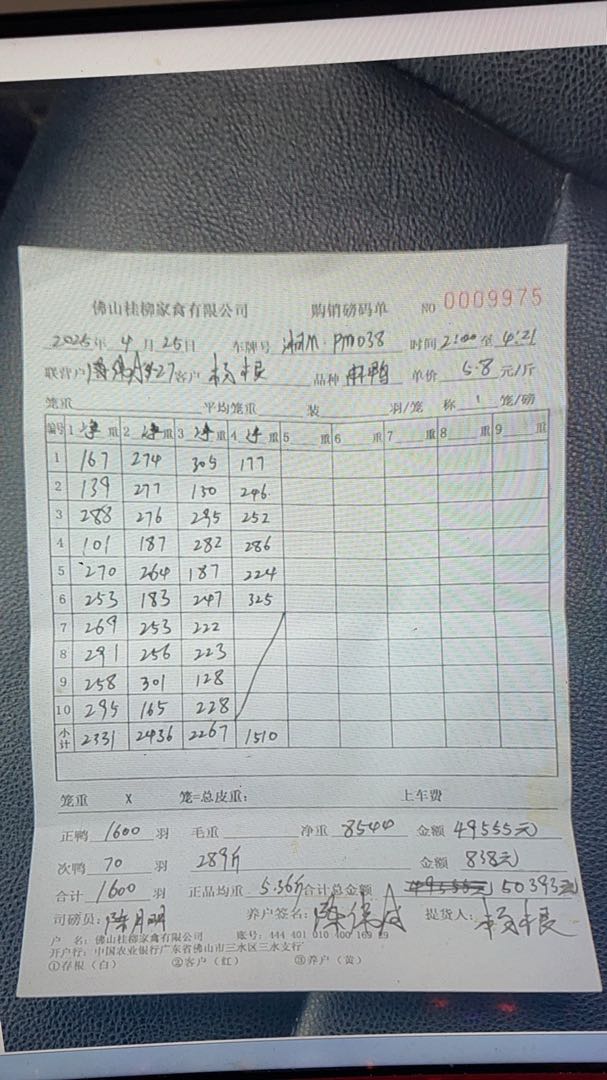 佛山桂柳家禽有限公司 购销磅码单 NO 0009975
2025年 4 月 25日 车牌号 湘M PM038 时间 2:00 至 4:21
联营户 27 客户 杨根 品种 麻鸭 单价 5.8 元/斤
笼重 平均笼重 装 羽/笼 称 1 笼/磅
编号 1 净 重 2 净 重 3 净 重 4 净 重 5 重 6 重 7 重 8 重 9 重
1 167 274 305 177
2 139 277 150 246
3 288 276 295 252
4 101 187 282 286
5 270 264 187 224
6 253 183 247 325
7 269 253 222
8 291 256 223
9 258 301 128
10 295 165 228
小计 2331 2436 2267 1510
笼重 X 笼=总皮重: 上车费
正鸭 1600 羽 毛重 净重 8544 金额 49555元
次鸭 70 羽 289斤 金额 838元
合计 1600 羽 正品均重 5.36斤 合计总金额 49555元 50393元
司磅员: 陈月明 养户签名: 提货人: 杨根
户 名: 佛山桂柳家禽有限公司 账号: 444 401 010 400 169 89
开户行: 中国农业银行广东省佛山市三水区三水支行
①存根(白) ②客户(红) ③养户(黄)